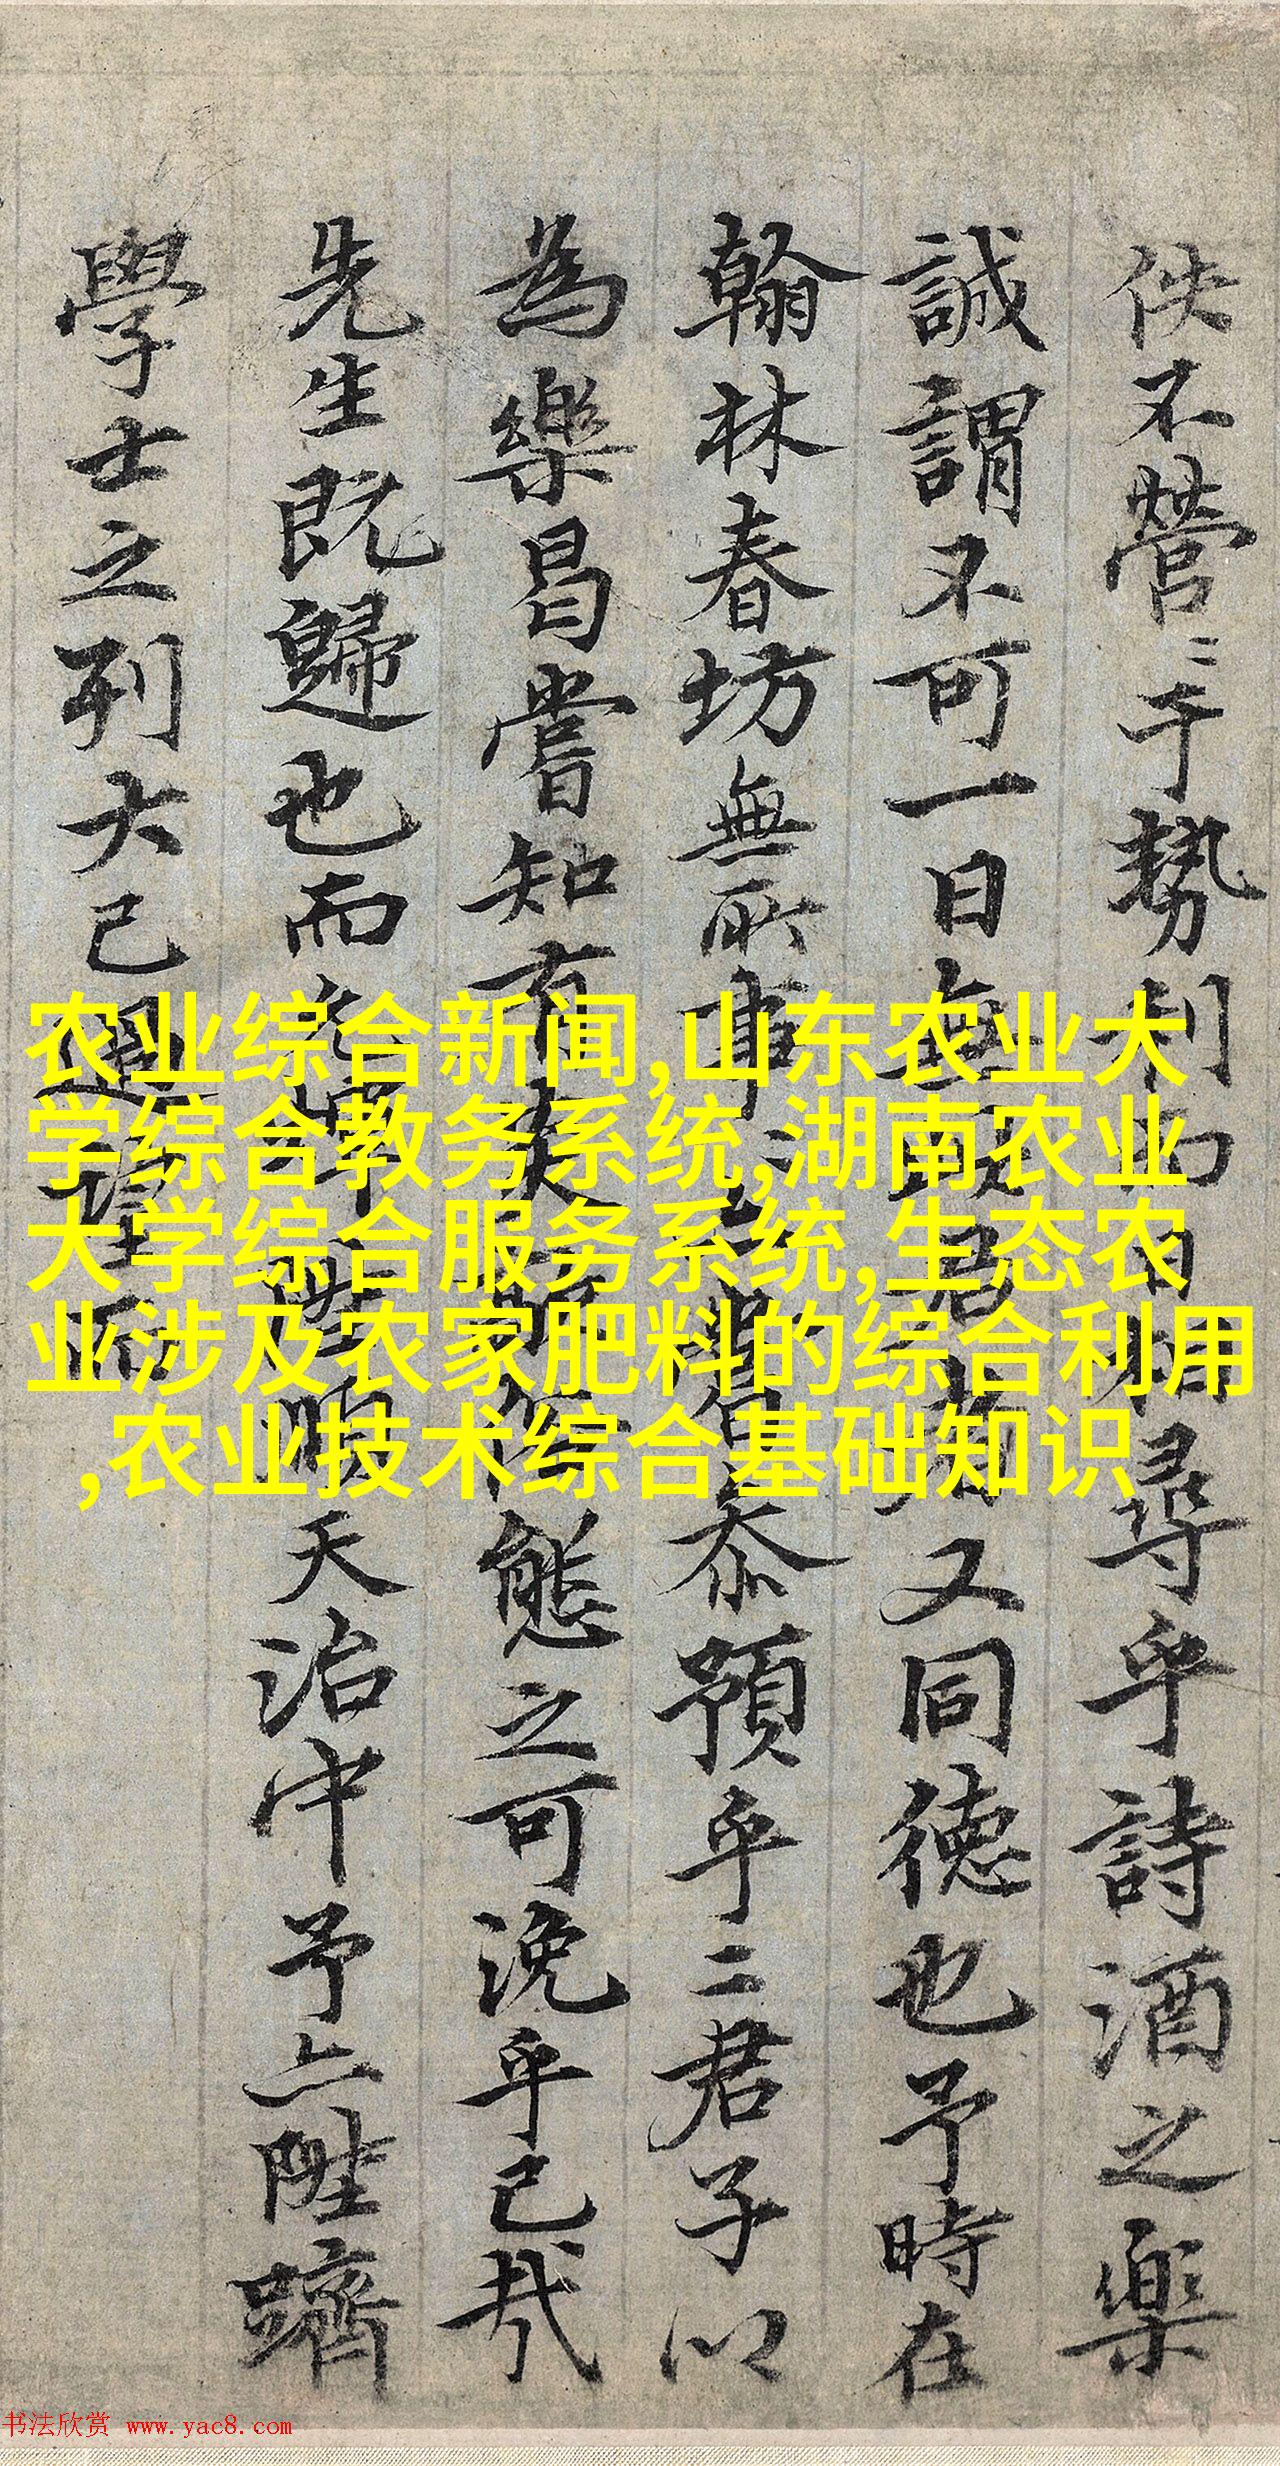 佚不營〻于勢利而日相尋乎詩酒之樂
誠謂不可一日無君者又同德也予時在
翰林春坊無所事嘗忝預乎二君子以
為樂曷嘗知有態之可浼乎己哉
先生既歸也而順天治中予亦陞躋
學士之列大已過望而
农业综合新闻,山东农业大
学综合教务系统,湖南农业
大学综合服务系统,生态农
业涉及农家肥料的综合利用
,农业技术综合基础知识
书法欣赏 www.yac8.com